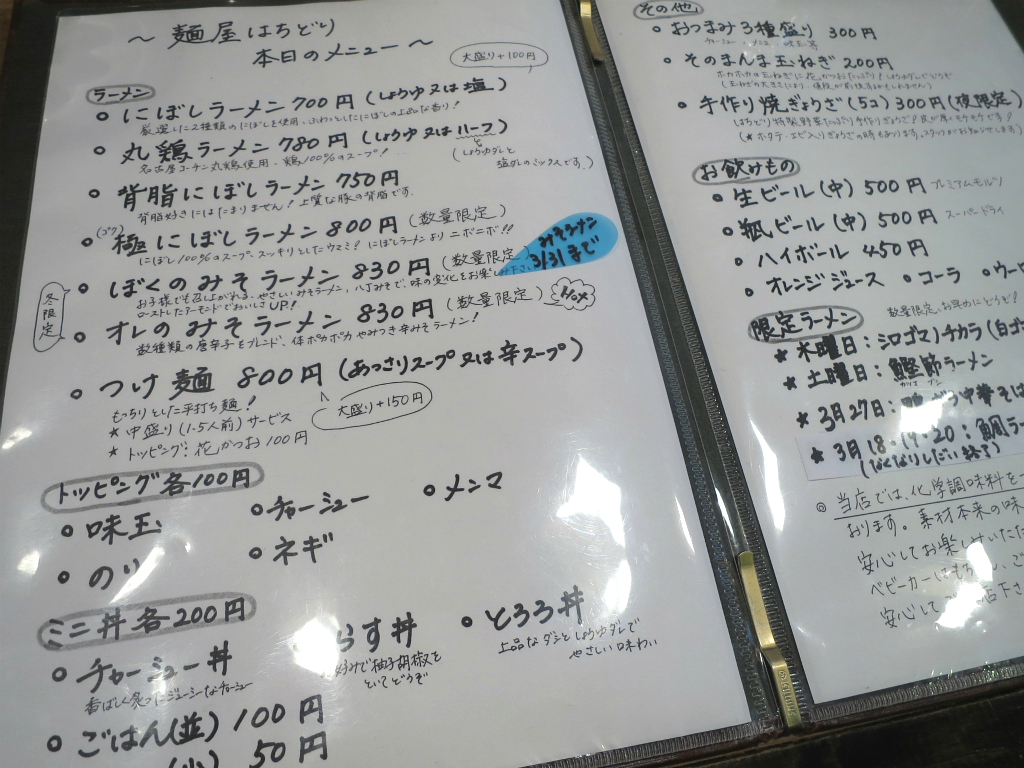 ～ 麺屋はちどり
本日のメニュー ～
大盛り+100円
ラーメン
・にぼしラーメン 700円 (しょうゆ又は塩)
厳選した2種類のにぼしを使用、ふわっとしたにぼしの上品な香り!
・丸鶏ラーメン 780円 (しょうゆ又はハーフ)
名古屋コーチン丸鶏使用、鶏100%のスープ!
(しょうゆダレと
塩ダレのミックスです。)
・背脂にぼしラーメン 750円
背脂好きにはたまりません!上質な豚の背脂です。
(ゴク)
・極にぼしラーメン 800円 (数量限定)
にぼし100%のスープ、スッキリとしたウマミ! にぼしラーメンよりニボニボ!!
みそラーメン
3/31まで
冬限定
・ぼくのみそラーメン 830円 (数量限定)
お子様でも召し上がれる、やさしいみそラーメン、八丁みそで、味の変化をお楽しみ下さい
ローストしたアーモンドでおいしさUP!
・オレのみそラーメン 830円 (数量限定)
数種類の唐辛子をブレンド、体ポカポカやみつき辛みそラーメン!
・つけ麺 800円 (あっさりスープ又は辛スープ)
大盛り+150円
もっちりとした平打ち麺!
★ 中盛り(1.5人前)サービス
★ トッピング: 花かつお100円
トッピング各100円
・味玉 ・チャーシュー ・メンマ
・のり ・ネギ
ミニ丼各200円
・チャーシュー丼 らす丼 ・とろろ丼
香ばしく炙ったジューシーなチャーシュー
好みで柚子胡椒を
といてどうぞ
上品なダシとしょうゆダレで
やさしい味わい
・ごはん(並) 100円
(小) 50円
その他
・おつまみ3種盛り 300円
チャーシュー メンマ 味玉等
・そのまんま玉ねぎ 200円
・手作り焼ぎょうざ(5コ)300円(夜限定)
はちどり特製野菜たっぷり手作りぎょうざ!皮が厚くモチモチです!
(★ホタテ・エビ入りぎょうざの時もあります。スタッフがお知らせします)
お飲みもの
・生ビール(中) 500円 プレミアムモルツ
・瓶ビール(中) 500円 スーパードライ
・ハイボール 450円
・オレンジジュース ・コーラ ・ウーロ
限定ラーメン
数量限定、お早めにどうぞ!
★ 木曜日: シロゴマノチカラ(白ゴマ
★ 土曜日: 鰹節ラーメン
かつお ブシ
★ 3月27日: がら中華そば
★ 3月18・19・20: 鯛ラー
(なくなりしだい終了)
◎ 当店では、化学調味料を一
おります。素材本来の味
安心してお楽しみいただ
ベビーカーはもちろん、ご
安心して ご 店下さ